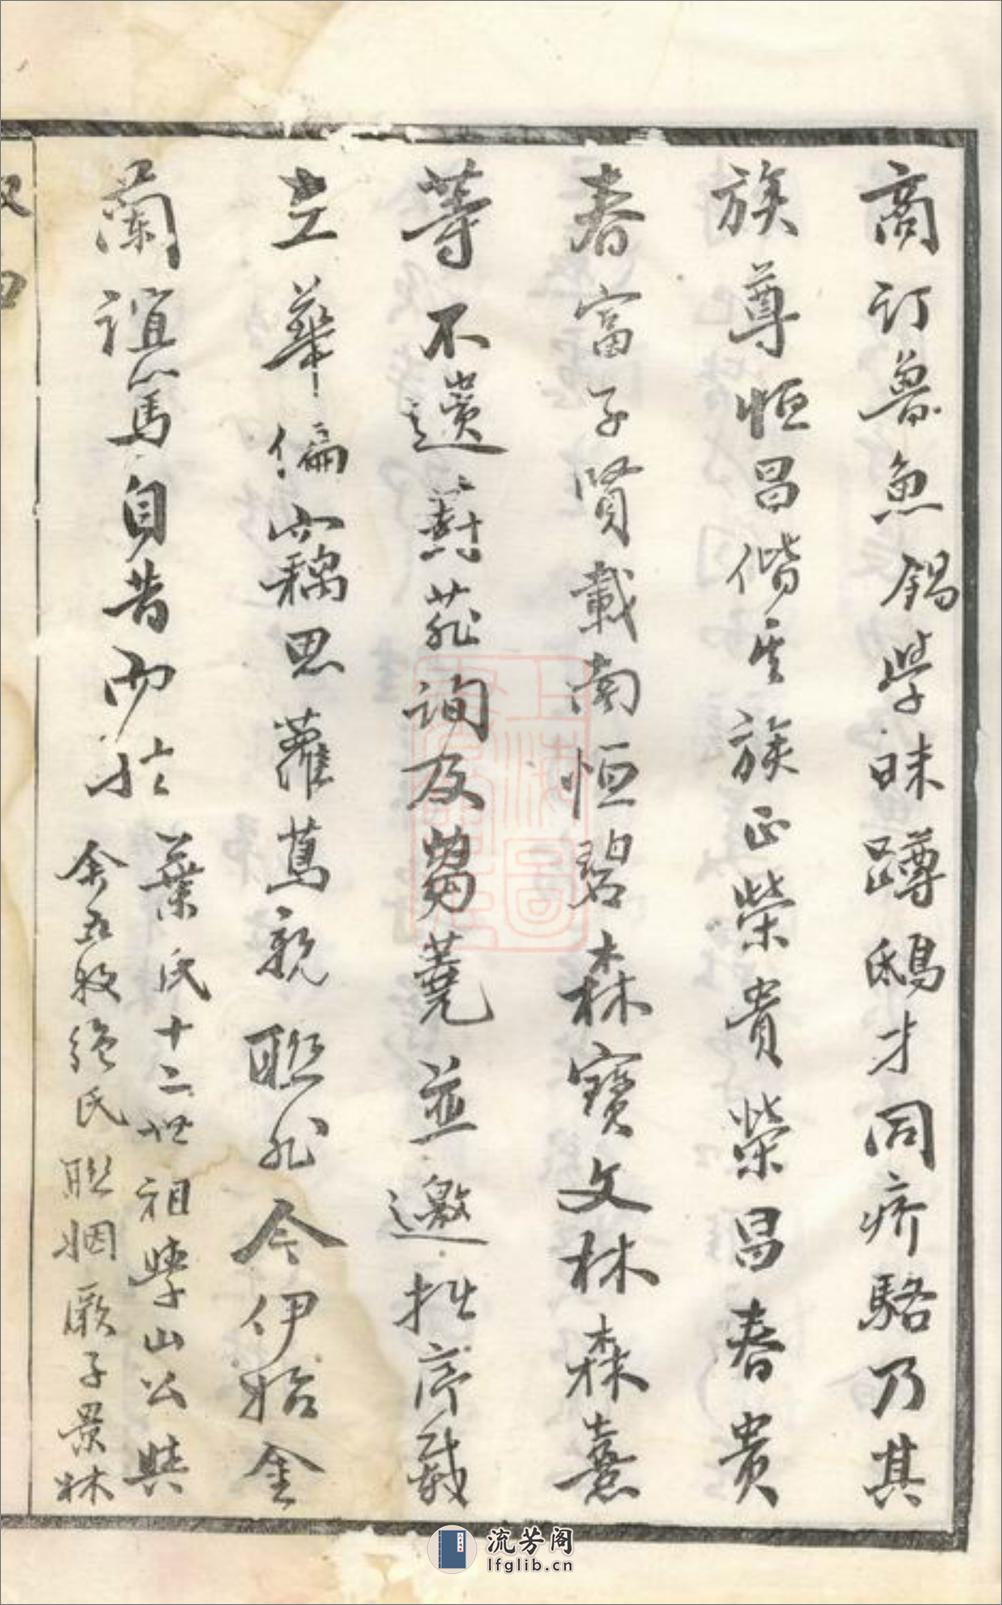 商訂魯魚錫學昧蹲鴟才同疥駱乃其
族尊恒昌偕其族正榮貴榮昌春貴
春富子賢載南恒碧森林寶文林森熹
等不遺葑菲詢及芻蕘並邀拙序載
立華偏竊思蘿蔦親聯非今伊始金
蘭誼篤自昔而於
葉氏十二世祖學山公與
余五敉繼氏聯姻厥子景林
流芳阁
lfglib.cn